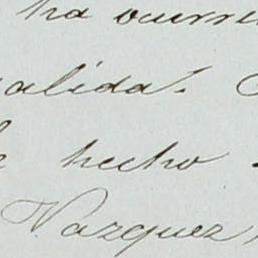 ha ocurri
valida.
hecho
Vazquez